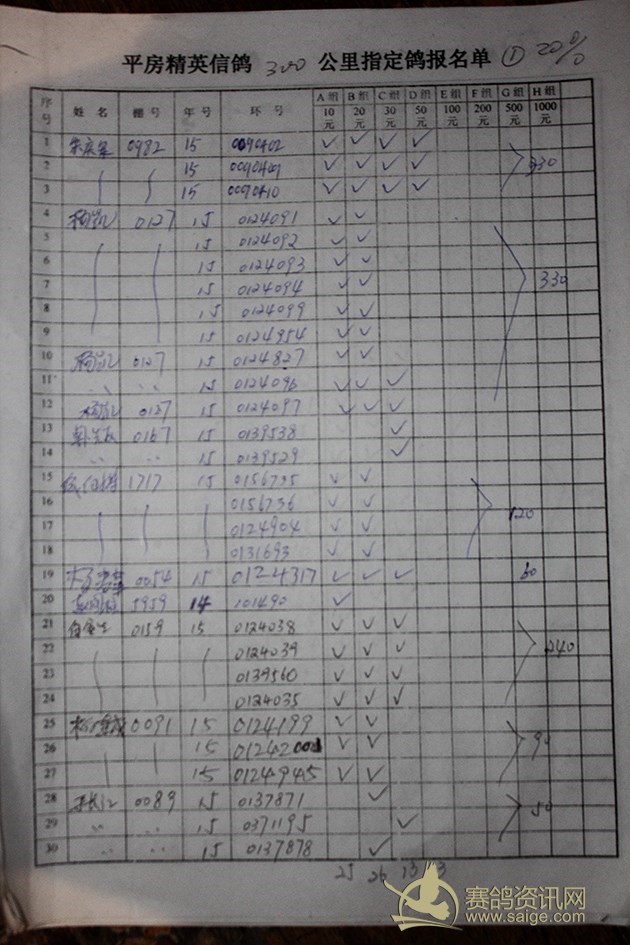 平房精英信鸽 300 公里指定鸽报名单 ① 20%
序号 姓名 棚号 年号 环号 A组10元 B组20元 C组30元 D组50元 E组100元 F组200元 G组500元 H组1000元
1 0982 15 0090402 ✓ ✓ ✓ ✓
2 15 0090409 ✓ ✓ ✓ ✓ 330
3 15 0090410 ✓ ✓ ✓ ✓
4 杨凯 0127 15 0124091 ✓ ✓
5 15 0124092 ✓ ✓
6 15 0124093 ✓ ✓
7 15 0124094 ✓ ✓ 330
8 15 0124099 ✓ ✓
9 15 0124954 ✓ ✓
10 杨凯 0127 15 0124827 ✓ ✓
11 〃 〃 15 0124096 ✓ ✓ ✓
12 杨凯 0127 15 0124097 ✓ ✓ ✓
13 0167 15 0139538 ✓
14 〃 〃 15 0139529 ✓
15 1717 15 0156735 ✓ ✓
16 0156736 ✓ ✓
17 0124904 ✓ ✓ 120
18 0131693 ✓ ✓
19 0054 15 0124317 ✓ ✓ ✓ 60
20 5959 14 101490 ✓
21 0159 15 0124038 ✓ ✓ ✓
22 0124039 ✓ ✓ ✓ 240
23 0139560 ✓ ✓ ✓
24 0124035 ✓ ✓ ✓
25 0091 15 0124199 ✓ ✓
26 15 ✓ ✓ 90
27 15 0124945 ✓ ✓
28 0089 15 0137871 ✓
29 〃 〃 15 0371195 ✓ 50
30 〃 〃 15 0137878 ✓
25 26 13 3
赛鸽资讯网
www.saige.com